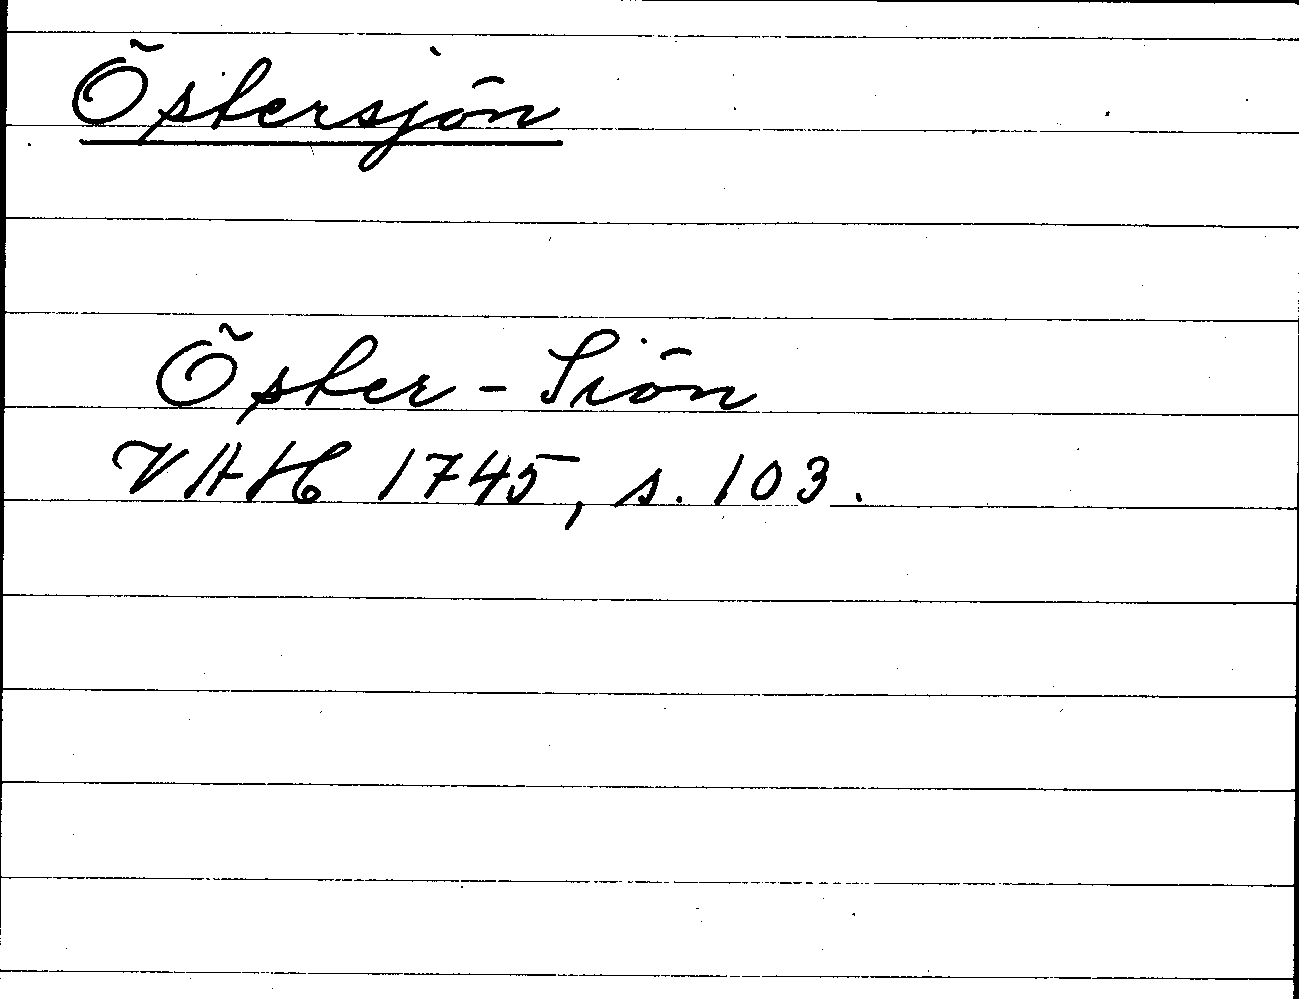 Östersjön
Öster-Siön
VAH 1745, s. 103.